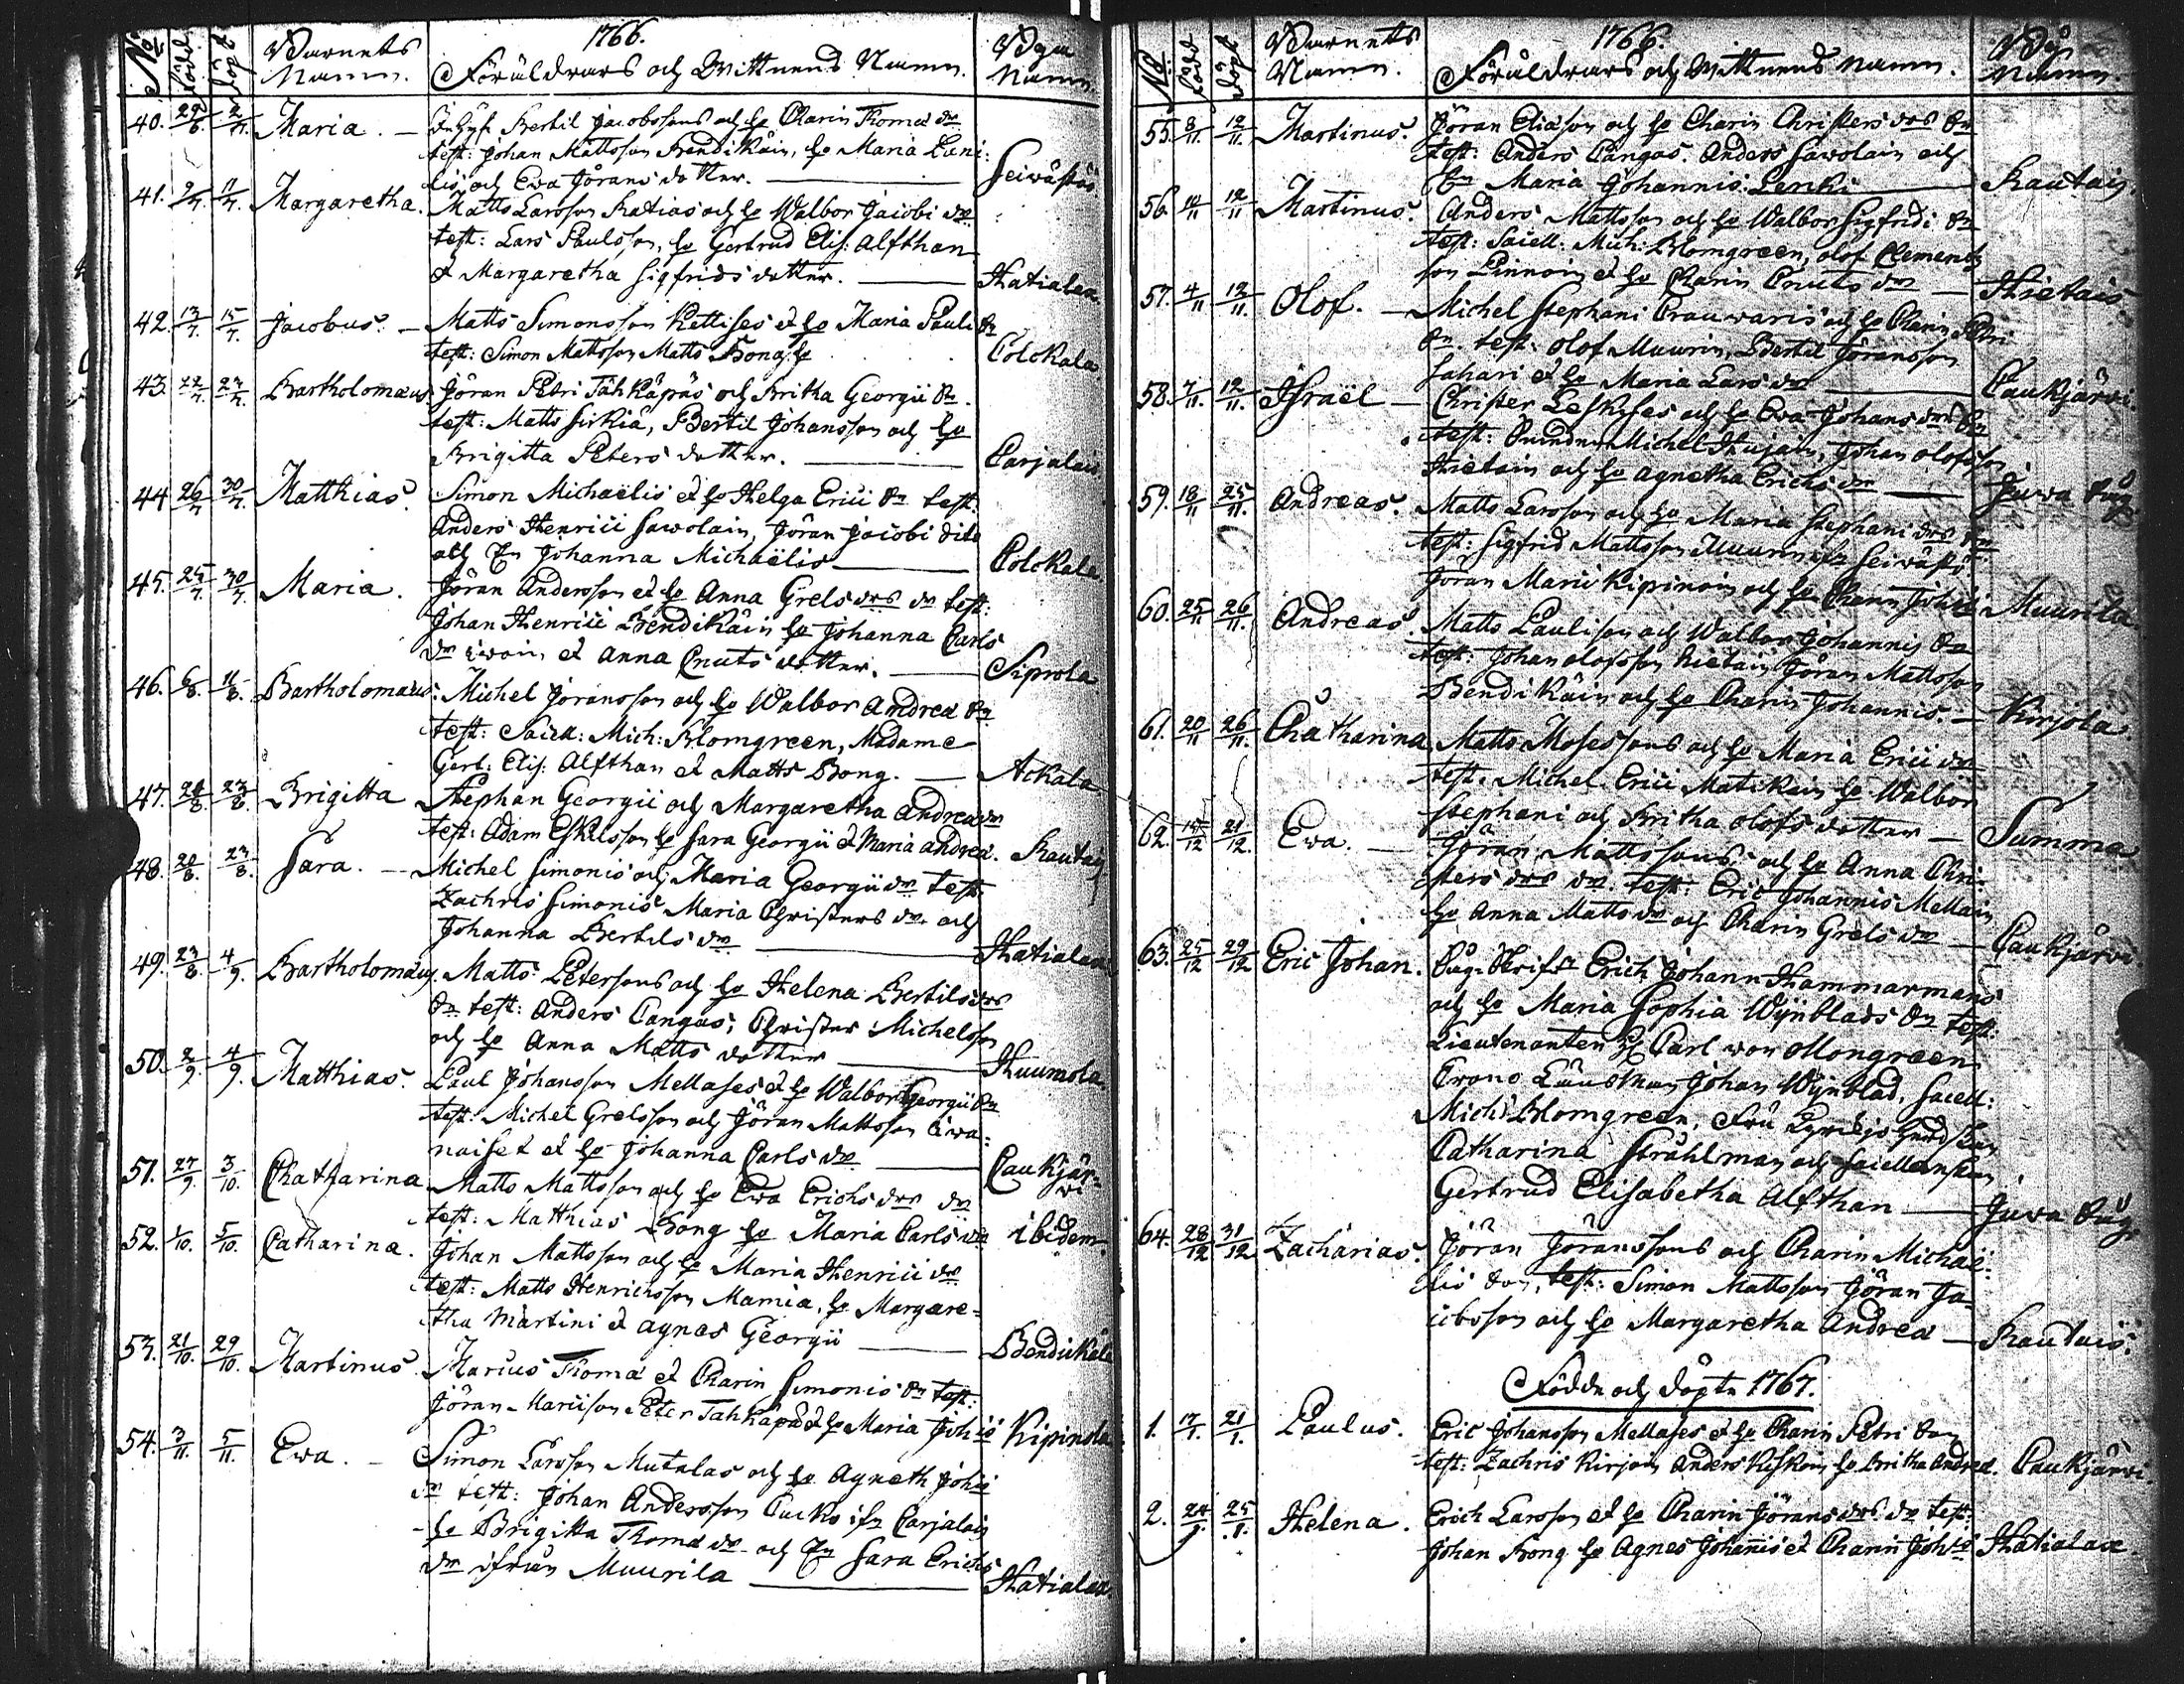 No född döpt Barnets Namn. 1766. Föräldrars och Wittnens Namn. Bya Namn.
40. 29/6. 2/7. Maria. — Inhys. Bertil Jacobssons och h Charin Thomæ dr
test: Johan Mattsson Bendikäin, h Maria Pauli:
lis, och Ewa Jörans dotter. — Seiwästö
41. 9/7. 11/7. Margaretha. Matts Larsson Ratias och h Walbor Jacobi dr
test: Lars Paulsson, h Gertrud Elis: Alfthan
& Margaretha Sigfrids dotter. — Hatialax.
42. 13/7. 15/7. Jacobus. — Matts Simonsson Kettises et h Maria Pauli Sn
test: Simon Mattsson Matts Bong h Colckala.
43. 22/7. 27/7. Bartholomæus Jöran Petri Tähkäpäs och Britha Georgii Sn.
test: Matts Sirkiä, Bertil Johansson och h
Brigitta Peters dotter. — Carjalais
44 26/7 30/7. Matthias. Simon Michaëlis et h Helga Erici Sn test.
Anders Henrici Sawolain, Jöran Jacobi dito
och Pn Johanna Michaëlis — Colckala
45. 25/7. 30/7. Maria. Jöran Andersson et h Anna Grels drs dr test:
Johan Henrici Bendikäin h Johanna Carls
dr iwoin, et Anna Cnuts dotter. — Siprola
46. 6/8. 11/8. Bartholomæus: Michel Jöransson och h Walbor Andreæ Sn
test: Sacell: Mich: Blomgreen, Madame
Gert: Elis: Alfthan et Matts Bong. — Ackala
47. 20/8. 23/8. Brigitta Stephan Georgii och Margaretha Andreæ dr
test: Adam Eskelsson h Sara Georgii et Maria Andreæ. Rautais
48. 20/8. 23/8. Sara. — Michel Simonis och Maria Georgii dr test
Zachris Simonis Maria Christers dr och
Johanna Bertils dr — Hatialax
49. 23/8. 4/9. Bartholomäus. Matts Peterssons och h Helena Bertils drs
Sn test: Anders Cangas, Christer Michelsson
och h Anna Matts dotter — Huumola
50. 2/9. 4/9. Matthias. Paul Johansson Mellases et h Walbor Georgii Sn
test: Michel Grelsson och Jöran Mattsson Iiwa=
naiset et h Johanna Carls dr — Caukjär=
wi
51. 27/9. 3/10. Chatharina Matts Mattsson och h Ewa Erichs drs dr
test: Matthias Bong h Maria Carls dr ibidem
52. 1/10. 5/10. Catharina. Johan Mattsson och h Maria Henrici dr
test: Matts Henrichsson Mamia, h Margare=
tha Martini et Agnes Georgii — Bendickälä
53. 21/10. 29/10. Martinus. Marcus Thomæ et Charin Simonis Sn test:
Jöran Marcisson Peter Tahkäpä et h Maria Joh:s Kipinola
54. 3/11. 5/11. Ewa. — Simon Larsson Mutalas och h Agneth Joh:s
dr test: Johan Andersson Pucko ifrn Carjalais
h Brigitta Thomæ dr och Pn Sara Erichs
dr ifrån Muurila — Hatialax.
No född döpt Barnets Namn. 1766. Föräldrars och Wittnens Namn. Byа Namn.
55. 8/11. 12/11. Martinus. Jöran Eliasson och h Charin Christers drs Sn
test: Anders Cangas. Anders Sawolain och
Pn Maria Johannis Lenki — Rautais.
56. 10/11 12/11 Martinus. Anders Mattsson och h Walbor Sigfridi Sn
test: Sacell: Mich: Blomgreen, Olof Clements
son Pinnoin et h Charin Cnuts dr — Hietais
57. 4/11 12/11. Olof. — Michel Stephani Crauwaris och h Charin Petri
Sn. test. Olof Muurin, Bertil Jöransson
Sahari et h Maria Lars dr — Caukjärwi.
58. 7/11. 12/11. Israël — Christer Leskises och h Ewa Johans drs Sn
test: Michel Hujain, Johan Olofsson
Hietain och h Agnetha Erichs dr — Juwa Bug
59. 18/11 25/11. Andreas. Matts Larsson och h Maria Stephani drs Sn
test: Sigfrid Mattsson Muurin Seiwästö
Jöran Marci Kipinoin och h Charin Joh:s Muurila
60. 25/11 26/11. Andreas. Matts Paulison och Walbor Johannis Sn
test: Johan Olofsson Hietain Jöran Mattsson
Bendikäin och h Charin Johannis. — Kirjola.
61. 20/11 26/11. Chatharina Matts Mosessons och h Maria Erici dr
test. Michel Erici Matikain h Walbor
Stephani och Britha Olofs dotter — Summa
62. 15/12 21/12. Ewa. — Jöran Mattssons och h Anna Chri-
sters drs dr. test: Eric Johannis Mellain
h Anna Matts dr och Charin Grels dr — Caukjärwi.
63. 25/12 29/12 Eric Johan. Bug. Skrifr Erich Johann Hammarmans
och h Maria Sophia Wijnblads Sn test:
Lieutenanten H Carl von Mongreen
Crono Länsman Johan Wijnblad, Sacell:
Mich: Blomgreen, Fru Kyrckjoherdskan
Catharina Stråhlman och Sacellanskan
Gertrud Elisabetha Alfthan — Juwa Bug.
64. 28/12 31/12 Zacharias. Jöran Jöranssons och Charin Michaë-
lis Son, test: Simon Mattsson Jöran Ja-
cobsson och h Margaretha Andreæ — Rautais.
Födde och döpte 1767.
1. 17/1. 21/1. Paulus. Eric Johansson Mellases et h Charin Petri Son
test: Zachris Kirjoin Anders Kiskoin h Britha Andreæ. Caukjärwi.
2. 24/1 25/1. Helena. Erich Larsson et h Charin Jörans drs dr test:
Johan Bong h Agnes Johannis et Charin Joh:s Hatialax.